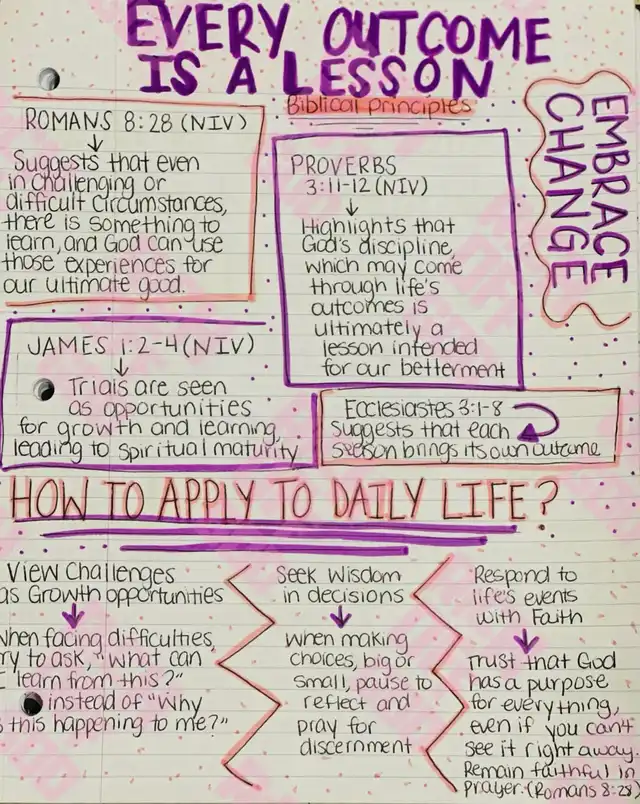 EVERY OUTCOME
IS A LESSON
Biblical principles
EMBRACE
CHANGE
ROMANS 8:28 (NIV)
Suggests that even
in challenging or
difficult circumstances,
there is something to
learn, and God can use
those experiences for
our ultimate good.
PROVERBS
3:11-12 (NIV)
Highlights that
God's discipline,
which may come
through life's
outcomes is
ultimately a
lesson intended
for our betterment
JAMES 1:2-4 (NIV)
Trials are seen
as opportunities
for growth and learning,
leading to spiritual maturity
Ecclesiastes 3:1-8
Suggests that each
season brings its own outcome
HOW TO APPLY TO DAILY LIFE?
View Challenges
as Growth opportunities
when facing difficulties,
try to ask, "what can
I learn from this?"
instead of "Why
is this happening to me?"
Seek Wisdom
in decisions
when making
choices, big or
small, pause to
reflect and
pray for
discernment
Respond to
life's events
with Faith
Trust that God
has a purpose
for everything,
even if you can't
see it right away.
Remain faithful in
prayer. (Romans 8:28)